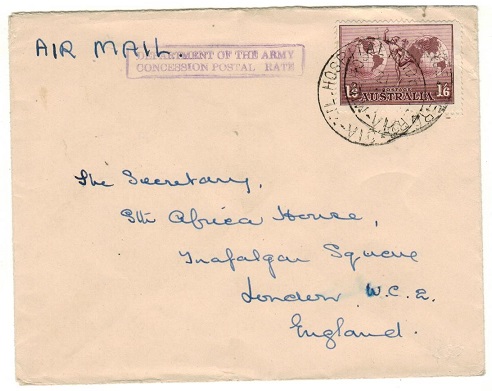 AIR MAIL.
DEPARTMENT OF THE ARMY
CONCESSION POSTAL RATE
1/6 AUSTRALIA 1/6
The Secretary,
Sth Africa House,
Trafalgar Square
London W.C.2.
England.